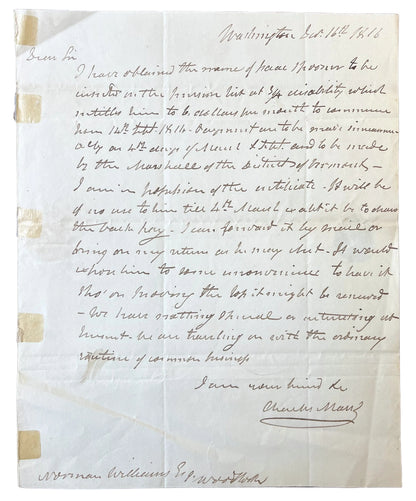 Washington Dec 16th 1816
Dear Sir
I have obtained the name of Isaac Spooner to be
inserted on the pension list at 3/4 disability which
entitles him to 6 dollars per month to commence
from 14th Sept 1816. Payment are to be made
on 4th days of March & Sept. and to be made
by the Marshall of the District of Vermont -
I am in possession of the certificate - It will be
of no use to him till 4th March
the back pay - I can forward it by mail or
bring on my return as he may chuse - It would
him to some inconvenience to have it
tho' on proving the loss it might be renewed
- We have nothing special or interesting at
present. We are traveling on with the ordinary
routine of common business
I am your friend &c
Charles Marsh
Norman Williams Esqr Woodstock